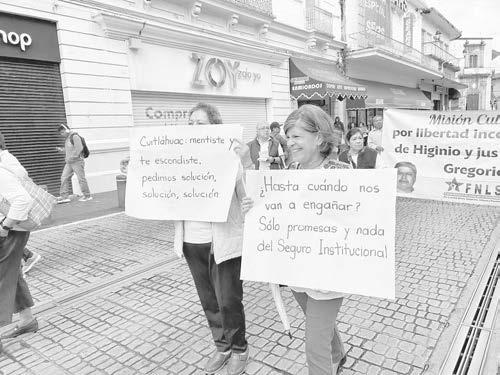 hop
ZOY
zoló yo
Compro
Cuitláhuac: mentiste y
te escondiste,
pedimos solución,
solución, solución
¿Hasta cuándo nos
van a engañar?
Sólo promesas y nada
del Seguro Institucional
Misión Cul
por libertad inco
de Higinio y jus
Gregori
FNLS